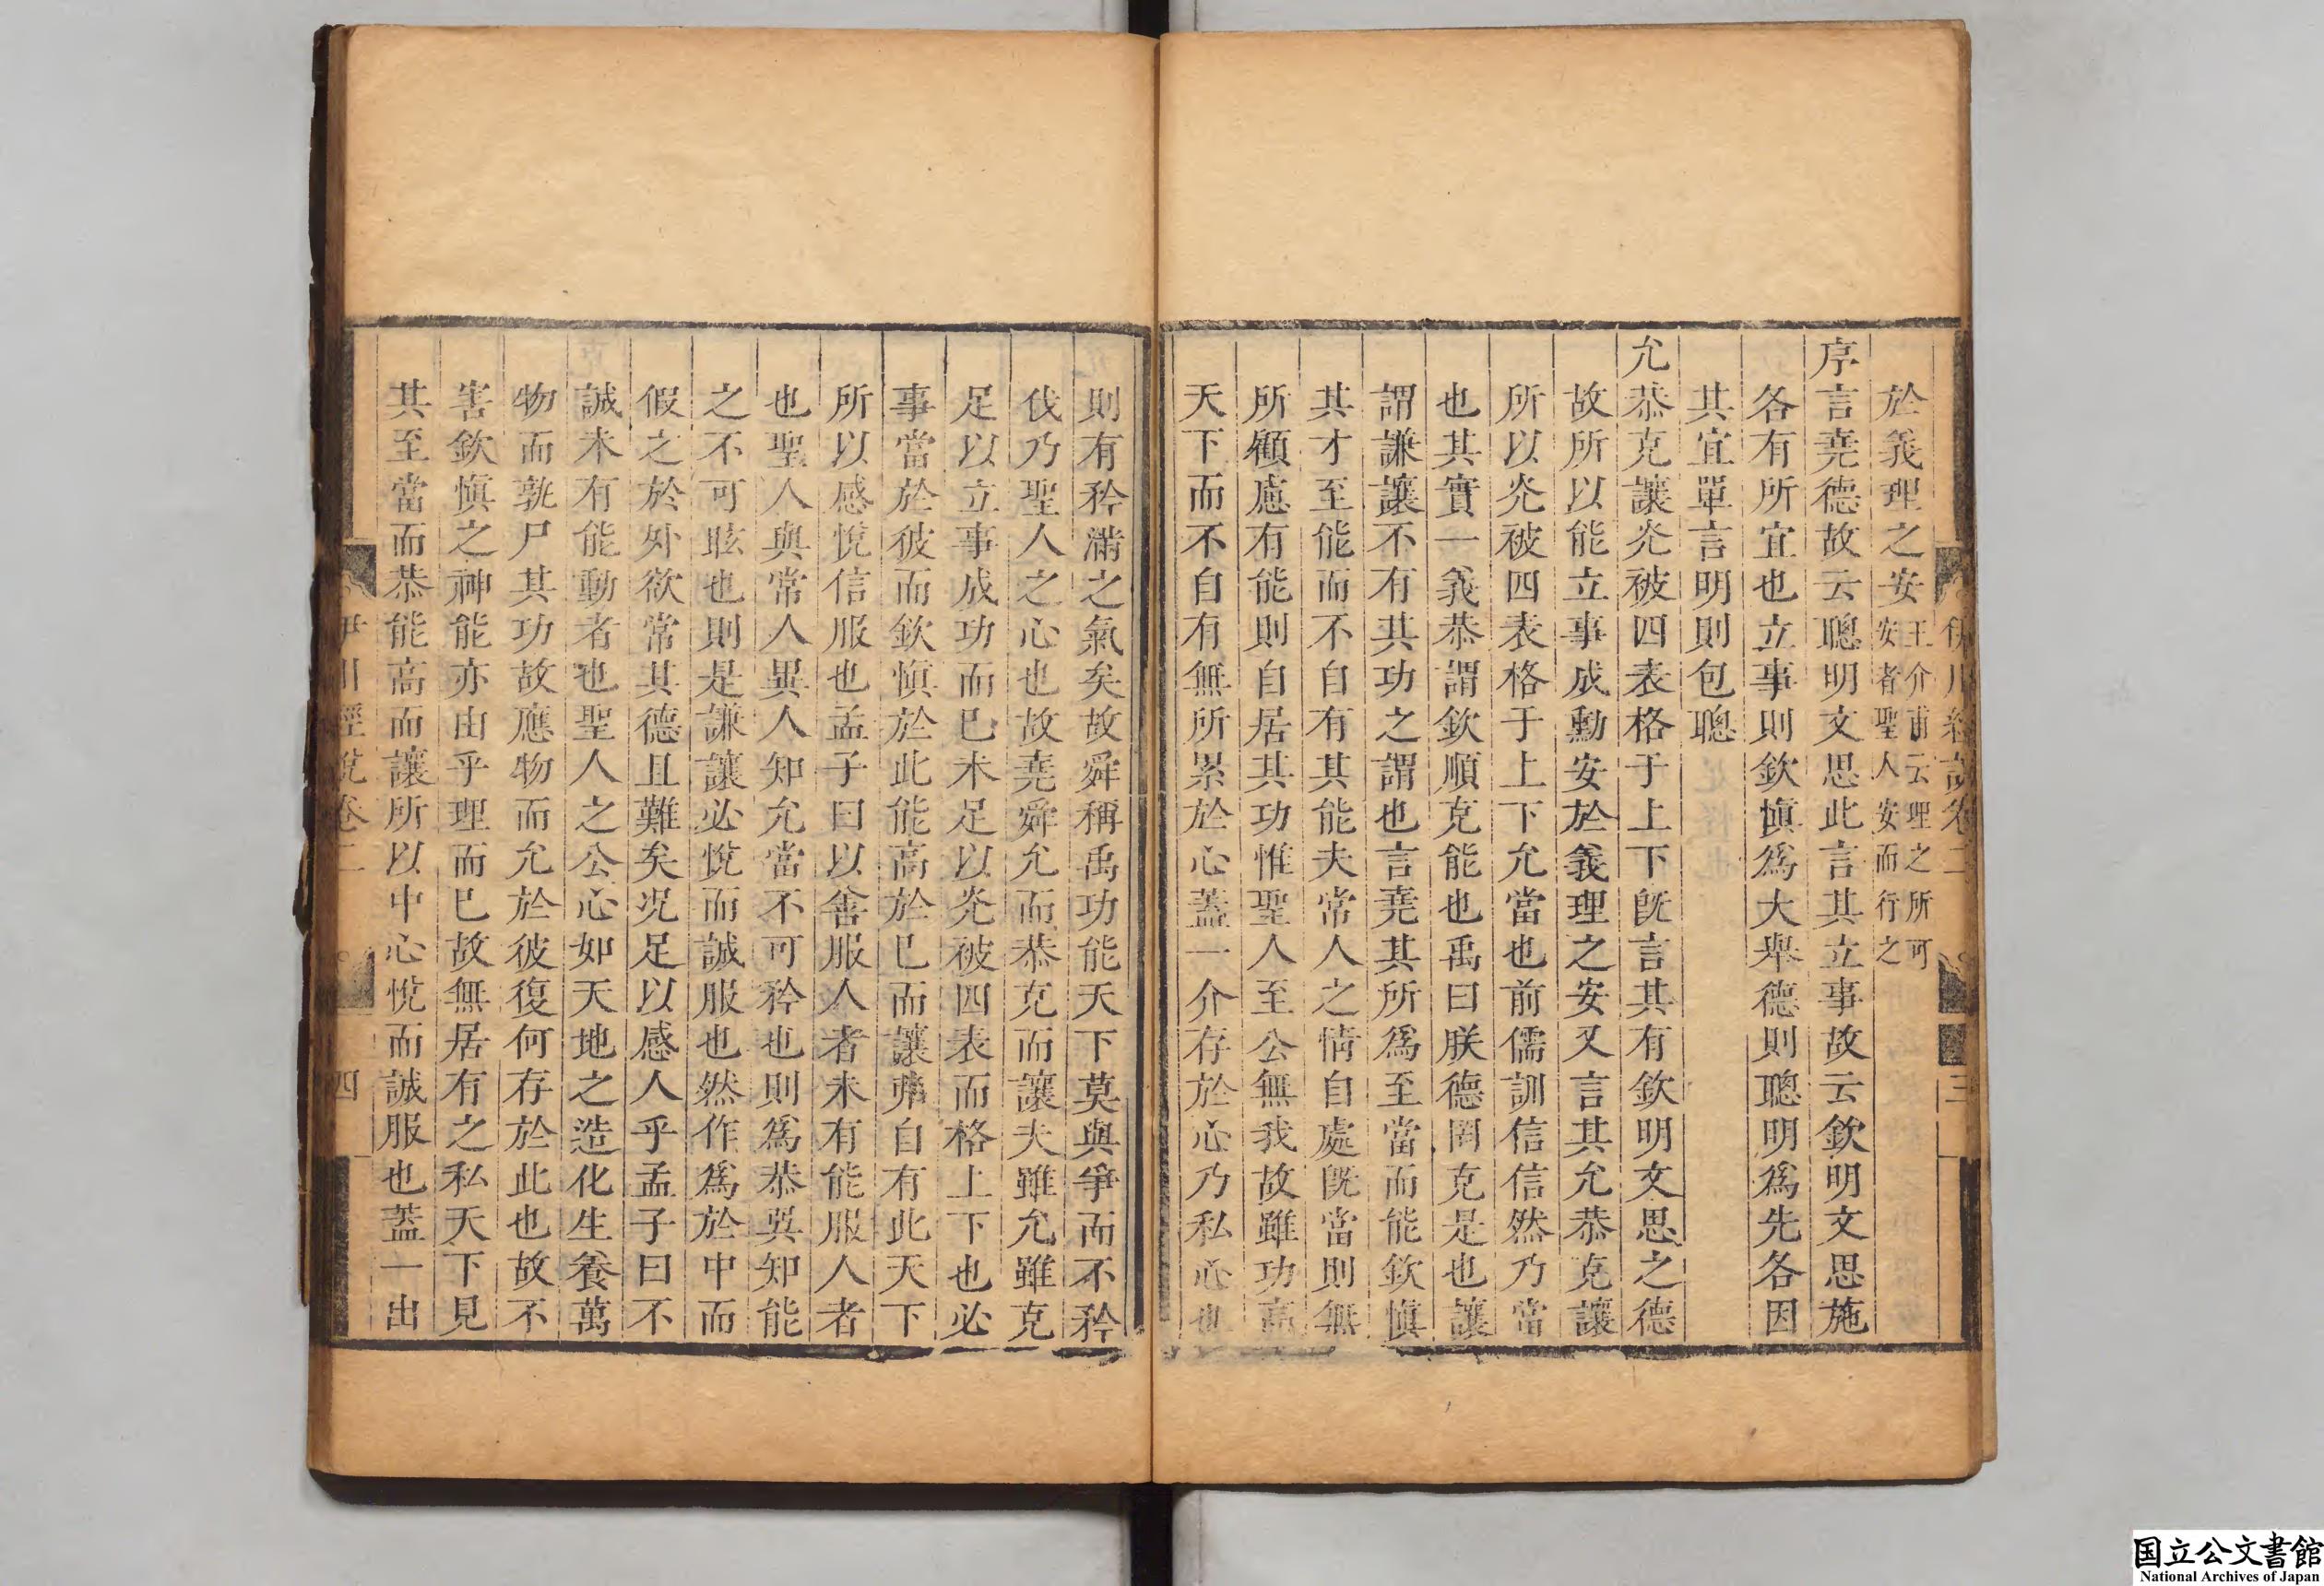 伊川經說卷二
三
於義理之安王介甫云理之所可
安者聖人安而行之
序言堯德故云聰明文思此言其立事故云欽明文思施
各有所宜也立事則欽愼爲大舉德則聰明爲先各因
其宜單言明則包聰
允恭克讓光被四表格于上下旣言其有欽明文思之德
故所以能立事成勳安於義理之安又言其允恭克讓
所以光被四表格于上下允當也前儒訓信信然乃當
也其實一義恭謂欽順克能也禹曰朕德罔克是也讓
謂謙讓不有其功之謂也言堯其所爲至當而能欽愼
其才至能而不自有其能夫常人之情自處旣當則無
所顧慮有能則自居其功惟聖人至公無我故雖功高
天下而不自有無所累於心蓋一介存於心乃私心也
則有矜滿之氣矣故舜稱禹功能天下莫與爭而不矜
伐乃聖人之心也故堯舜允而恭克而讓夫雖允雖克
足以立事成功而已未足以光被四表而格上下也必
事當於彼而欽愼於此能高於已而讓弗自有此天下
所以感悅信服也孟子曰以善服人者未有能服人者
也聖人與常人異人知允當不可矜也則爲恭巽知能
之不可眩也則是謙讓必悅而誠服也然作爲於中而
假之於外欲常其德且難矣况足以感人乎孟子曰不
誠未有能動者也聖人之公心如天地之造化生養萬
物而孰尸其功故應物而允於彼復何存於此也故不
害欽愼之神能亦由乎理而已故無居有之私天下見
其至當而恭能高而讓所以中心悅而誠服也蓋一出
伊川經說卷二
四
国立公文書館
National Archives of Japan